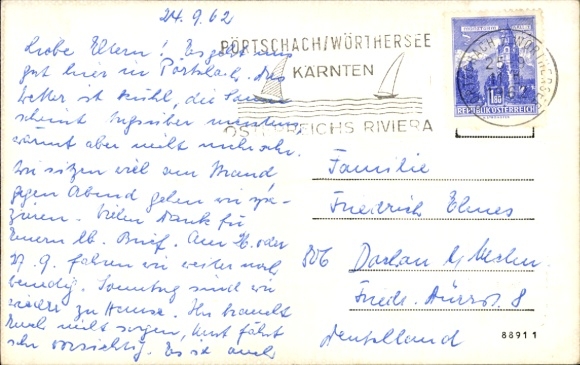 24.9.62
Liebe Eltern! Es geht uns
gut hier in Pörtsch. Das
Wetter ist kühl, die Sonne
scheint tagsüber
wärmt aber nicht mehr sehr.
Wir sitzen viel am Strand,
gegen Abend gehen wir spa-
zieren. Vielen Dank für
Euern lb. Brief. Am 26. oder
27.9. fahren wir weiter nach
Venedig. Sonntag sind wir
wieder zu Hause. Ihr braucht
Euch nicht sorgen, Kurt fährt
sehr vorsichtig. Es ist auch
PÖRTSCHACH/WÖRTHERSEE
KÄRNTEN
ÖSTERREICHS RIVIERA
1.80
REPUBLIK ÖSTERREICH
Familie
Friedrich
806 Dachau b/ München
Friedr. Dürrstr. 8
Deutschland
88911